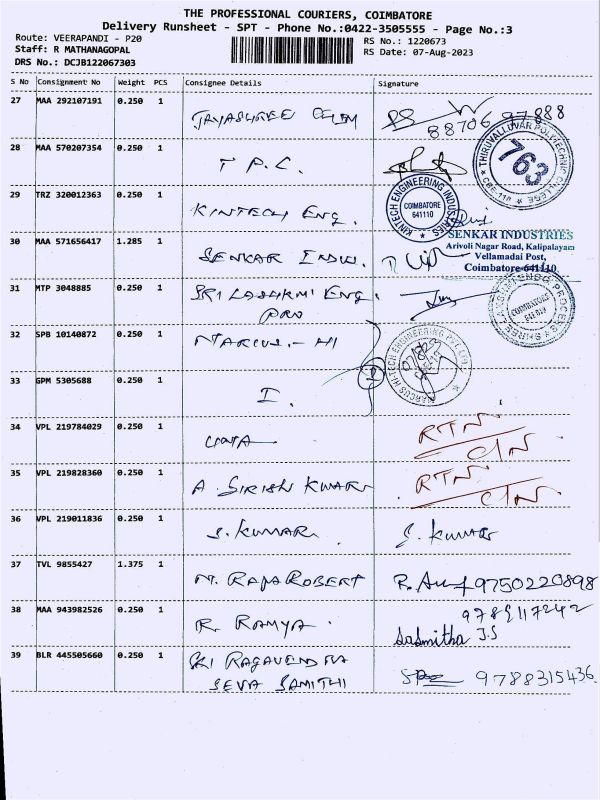 THE PROFESSIONAL COURIERS, COIMBATORE
Delivery Runsheet - SPT - Phone No.:0422-3505555 - Page No.:3
Route: VEERAPANDI - P20
RS No.: 1220673
Staff: R MATHANAGOPAL
RS Date: 07-Aug-2023
DRS No.: DCJB122067303
S No Consignment No Weight PCS Consignee Details Signature
27 MAA 292107191 0.250 1 JAYASHREE
88706 97888
28 MAA 570207354 0.250 1 T P.C.
THIRUVALLUVAR POLYTECHNIC COLLEGE
763
29 TRZ 320012363 0.250 1 KINTECH ENG.
KINTECH ENGINEERING INDUSTRIES
COIMBATORE
641110
30 MAA 571656417 1.285 1 SENKAR INDU.
SENKAR INDUSTRIES
Arivoli Nagar Road, Kalipalayam
Vellamadai Post,
Coimbatore-641110
31 MTP 3048885 0.250 1 SRI LAKSHMI ENG.
PRO
COIMBATORE
32 SPB 10140872 0.250 1 MARCUS - HI
MARCUS HI-TECH ENGINEERING PVT LTD
33 GPM 5305688 0.250 1 I.
2
34 VPL 219784029 0.250 1 UMA RTN
C/N
35 VPL 219828360 0.250 1 A SIRISH KUMAR RTN
C/N
36 VPL 219011836 0.250 1 S. KUMAR S. Kumar
37 TVL 9855427 1.375 1 M. RAJA ROBERT 9750220898
38 MAA 943982526 0.250 1 R. RAMYA. 9789117242
Sasmitha J.S
39 BLR 445505660 0.250 1 SRI RAGAVENDRA
SEVA SAMITHI 9788315436